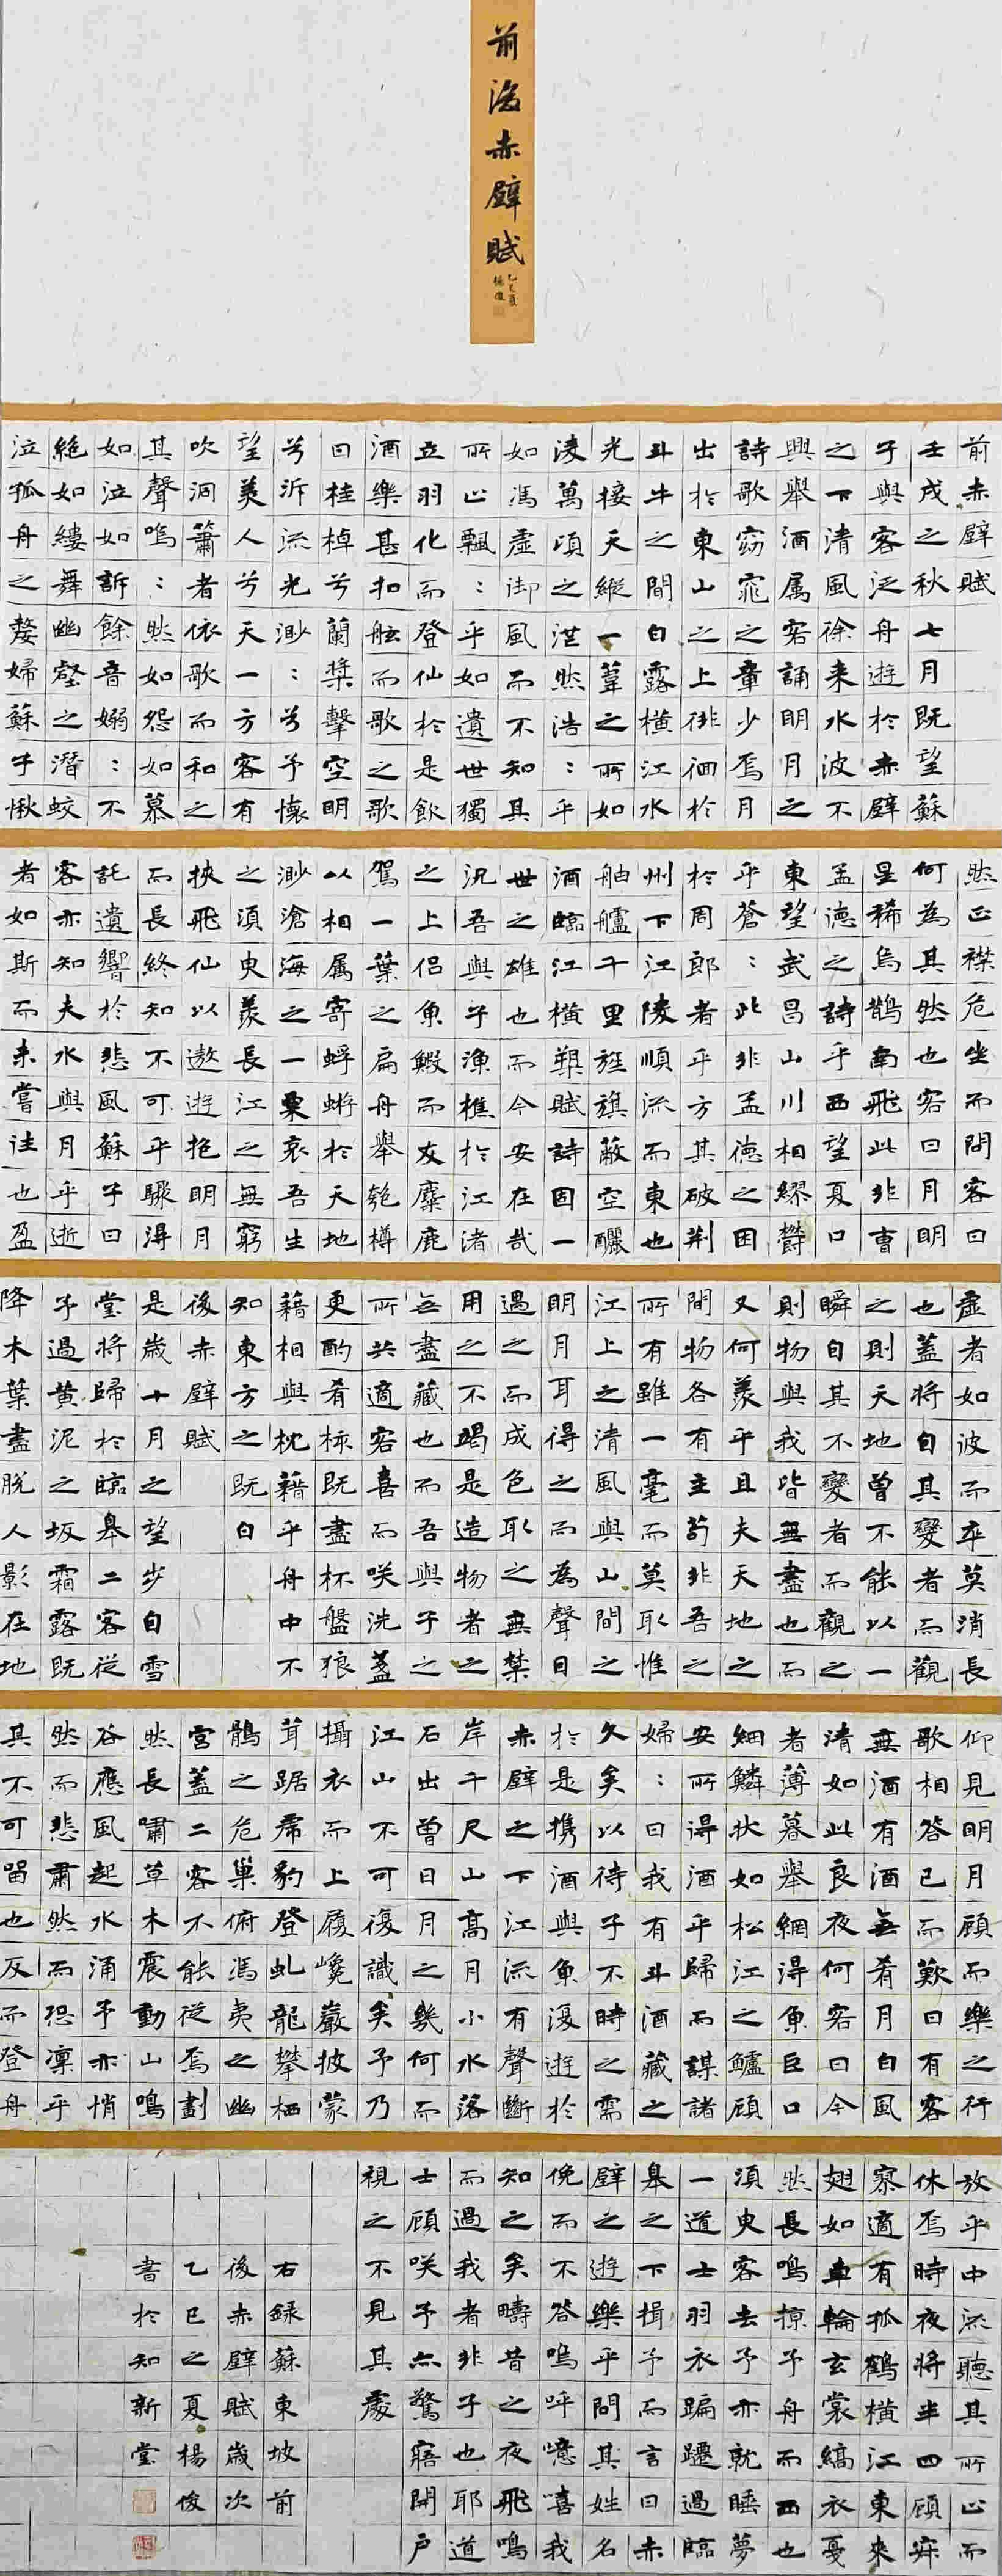 前後赤壁賦
乙巳夏
楊俊
前赤壁賦
壬戌之秋七月既望蘇
子與客泛舟遊於赤壁
之下清風徐来水波不
興舉酒属客誦明月之
詩歌窈窕之章少焉月
出於東山之上徘徊於
斗牛之間白露橫江水
光接天縱一葦之所如
淩萬頃之茫然浩:乎
如馮虛御風而不知其
所止飄:乎如遺世獨
立羽化而登仙於是飲
酒樂甚扣舷而歌之歌
曰桂棹兮蘭槳擊空明
兮泝流光渺:兮予懷
望美人兮天一方客有
吹洞簫者依歌而和之
其聲嗚:然如怨如慕
如泣如訴餘音嫋:不
絶如縷舞幽壑之潛蛟
泣孤舟之嫠婦蘇子愀
然正襟危坐而問客曰
何為其然也客曰月明
星稀烏鵲南飛此非曹
孟德之詩乎西望夏口
東望武昌山川相繆欝
乎蒼:此非孟德之困
於周郎者乎方其破荆
州下江陵順流而東也
舳艫千里旌旗蔽空釃
酒臨江橫槊賦詩固一
世之雄也而今安在哉
況吾與子漁樵於江渚
之上侣魚鰕而友麋鹿
駕一葉之扁舟舉匏樽
以相属寄蜉蝣於天地
渺滄海之一粟哀吾生
之須臾羨長江之無窮
挾飛仙以遨遊抱明月
而長終知不可乎驟得
託遺響於悲風蘇子曰
客亦知夫水與月乎逝
者如斯而未嘗往也盈
虛者如彼而卒莫消長
也蓋將自其變者而觀
之則天地曾不能以一
瞬自其不變者而觀之
則物與我皆無盡也而
又何羨乎且夫天地之
間物各有主苟非吾之
所有雖一毫而莫取惟
江上之清風與山間之
明月耳得之而為聲目
遇之而成色取之無禁
用之不竭是造物者之
無盡藏也而吾與子之
所共適客喜而咲洗盞
更酌肴核既盡杯盤狼
藉相與枕藉乎舟中不
知東方之既白
後赤壁賦
是歲十月之望步自雪
堂將歸於臨皋二客從
予過黄泥之坂霜露既
降木葉盡脱人影在地
仰見明月顧而樂之行
歌相答已而歎曰有客
無酒有酒無肴月白風
清如此良夜何客曰今
者薄暮舉網得魚巨口
細鱗狀如松江之鱸顧
安所得酒乎歸而謀諸
婦:曰我有斗酒藏之
久矣以待子不時之需
於是携酒與魚復遊於
赤壁之下江流有聲斷
岸千尺山高月小水落
石出曾日月之幾何而
江山不可復識矣予乃
攝衣而上履巉巖披蒙
茸踞虎豹登虬龍攀栖
鶻之危巢俯馮夷之幽
宮蓋二客不能從焉劃
然長嘯草木震動山鳴
谷應風起水涌予亦悄
然而悲肅然而恐凛乎
其不可留也反而登舟
放乎中流聽其所止而
休焉時夜將半四顧寂
寥適有孤鶴橫江東來
翅如車輪玄裳縞衣戛
然長鳴掠予舟而西也
須臾客去予亦就睡夢
一道士羽衣蹁躚過臨
皋之下揖予而言曰赤
壁之遊樂乎問其姓名
俛而不答嗚呼噫嘻我
知之矣疇昔之夜飛鳴
而過我者非子也耶道
士顧咲予亦驚寤開户
視之不見其處
右録蘇東坡前
後赤壁賦歲次
乙巳之夏楊俊
書於知新堂